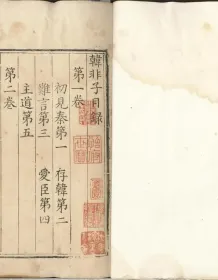 韓非子目錄
第一卷
初見秦第一
存韓第二
難言第三
愛臣第四
主道第五
第二卷